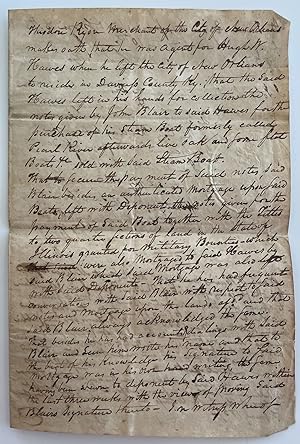 Theodore Rison Merchant of the City of New Orleans
makes oath that he was Agent for Hugh N.
Hawes when he left the City of New Orleans
to reside in Daviess County Ky. That the said
Hawes left in his hands for collection the
notes given by John Blair to said Hawes for the
purchase of his Steam Boat formerly called
Pearl River afterwards live oak and some flat
Boats &c sold with said Steam Boat.
That to secure the payment of said notes, said
Blair besides an authenticated Mortgage upon said
Boats, left with Deponent the notes given for the
payment of said Boat together with the Titles
to two quarter sections of land in the State of
Illinois granted for Military Bounties which
were Mortgaged to said Hawes by
said Blair which said Mortgage was also left
with said Deponent. That he has had frequent
conversations with said Blair with respect of said
notes and Mortgage upon the lands afsd and that
said Blair always acknowledged the same.
That besides he has had dealings with said
Blair and seen him write his name and that to
the best of his knowledge his Signature to said
Mortgage was in his own hand writing, the same
having been shown to deponent by said Hawes within
the last three weeks with the view of proving said
Blairs Signature thereto - In Witness whereof